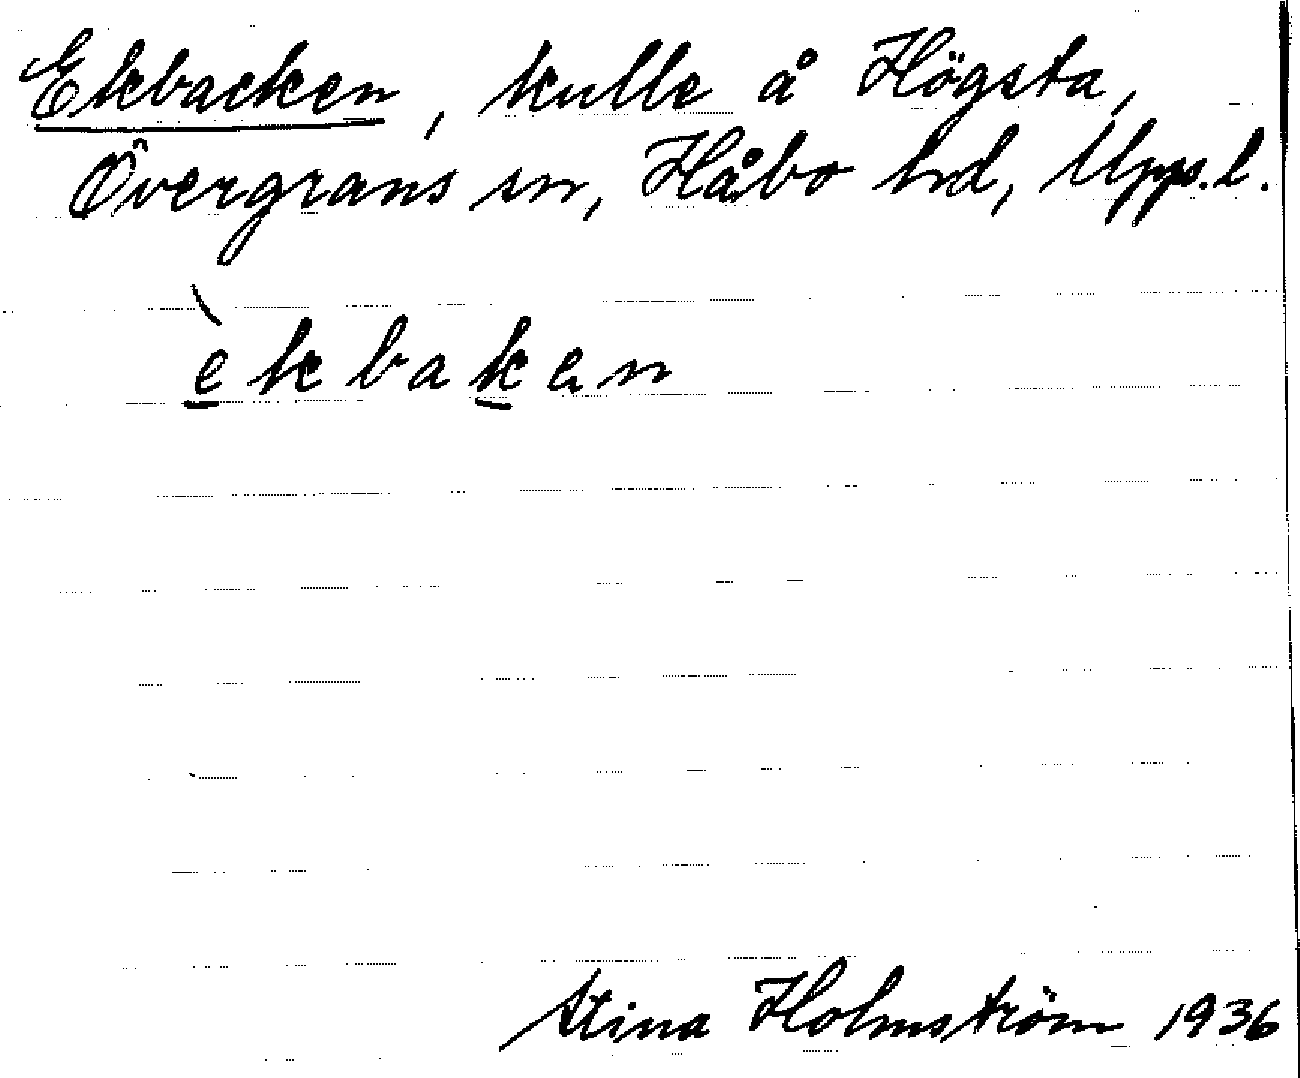 Ekbacken, kulle å Högsta,
Övergrans sn, Håbo hd, Upps.l.
èkbaken
Stina Holmström 1936